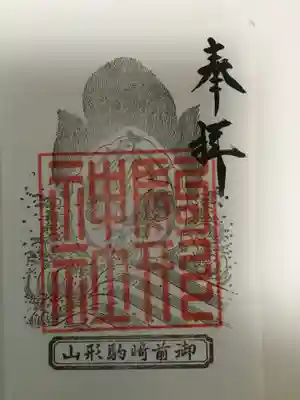 奉拝
駒形
神社
御前崎駒形山